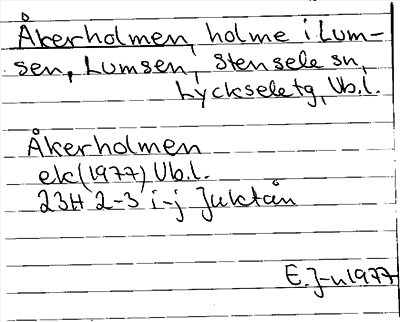 Åkerholmen, holme i Lum-
sen, Lumsen, Stensele sn,
Lyckseletg, Vb.l.
Åkerholmen
ek(1977) Vb.l.
23H 2-3 i-j Juktån
E.J-n 1977